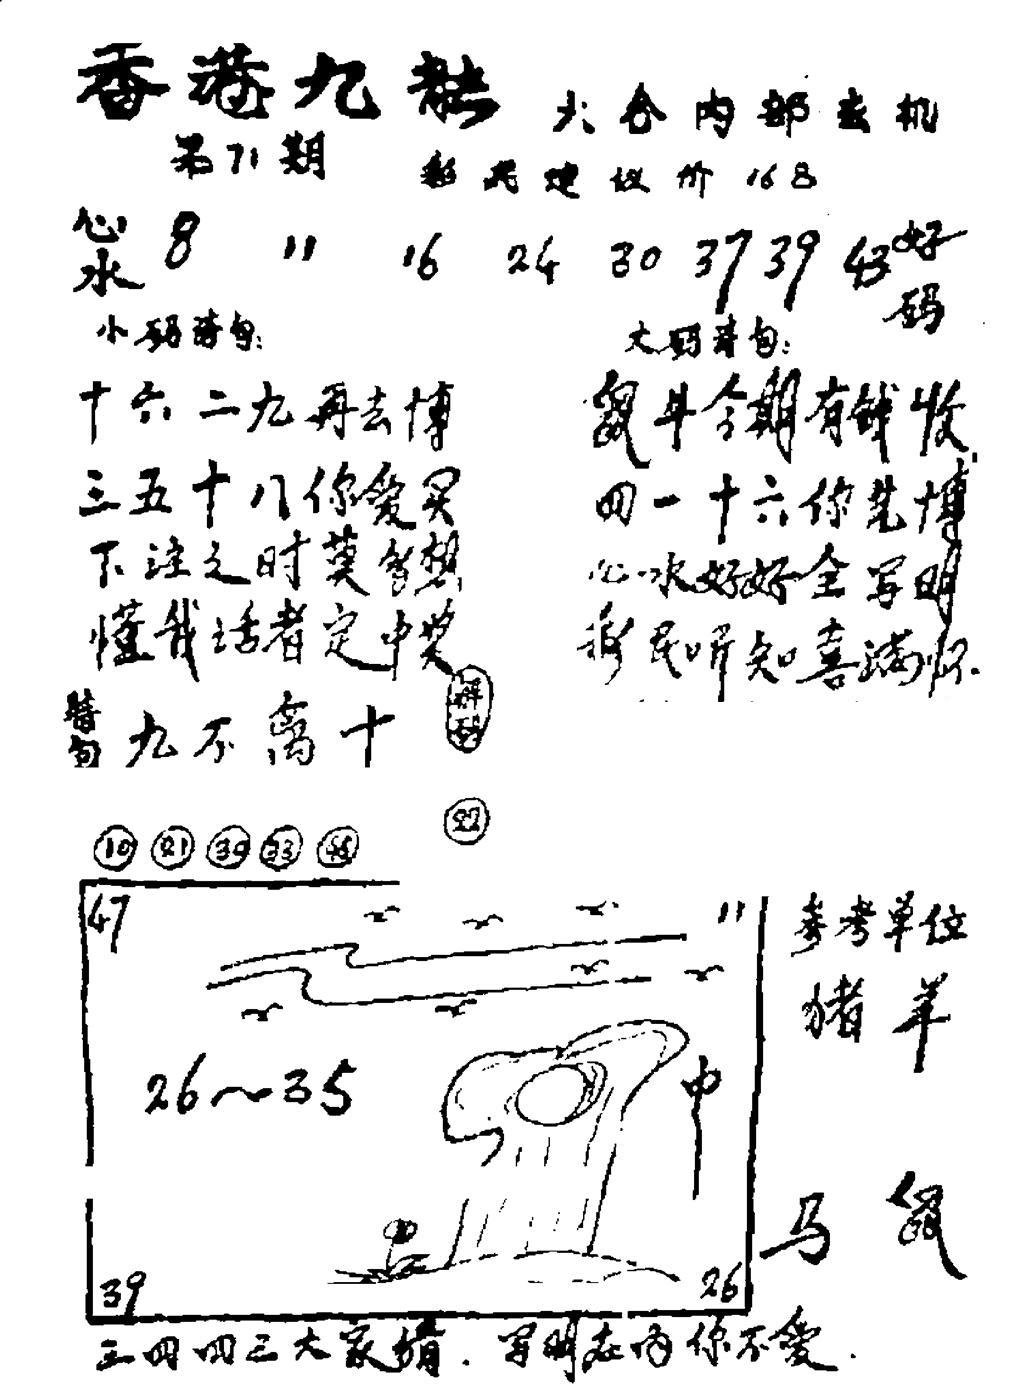 香港九龙 六合内部玄机
第71期 彩民建议价168
心水 8 11 16 24 30 37 39 43 好码
小码诗句: 大码诗句:
十六二九再去博 鼠牛今期有钱收
三五十八你爱买 四一十六你先博
下注之时莫多想 心水好好全写明
懂我话者定中奖 彩民听知喜满怀
赠句 九不离十
22
10 21 39 33 45
47 11 参考单位
猪羊
26~35 中
马鼠
39 26
三四四三大家猜.写明在内你不爱.